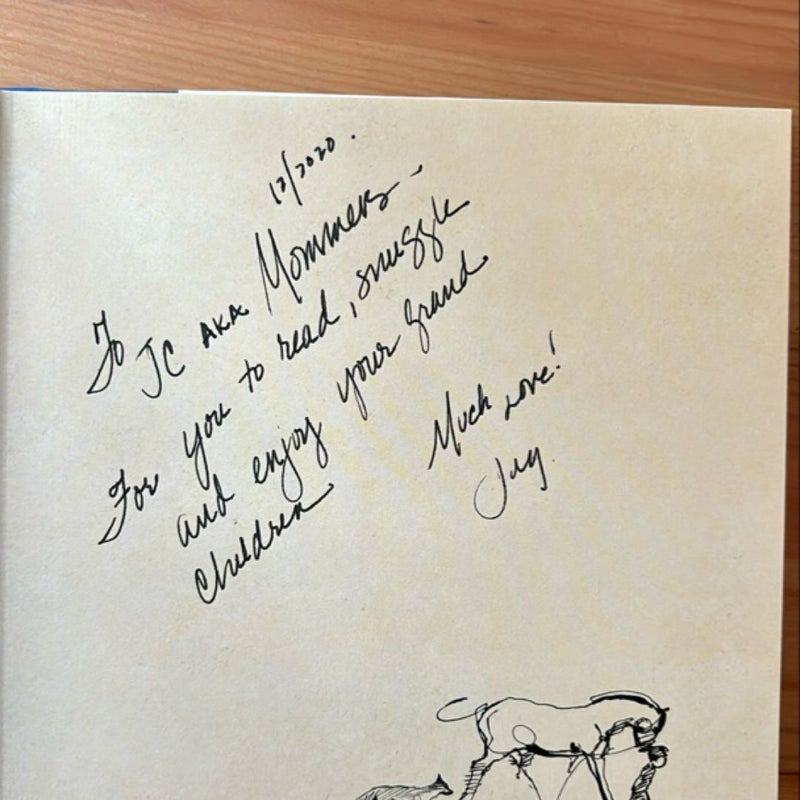 12/2020.
To JC AKA Mommers -
For you to read, snuggle
and enjoy your grand
children
Much Love!